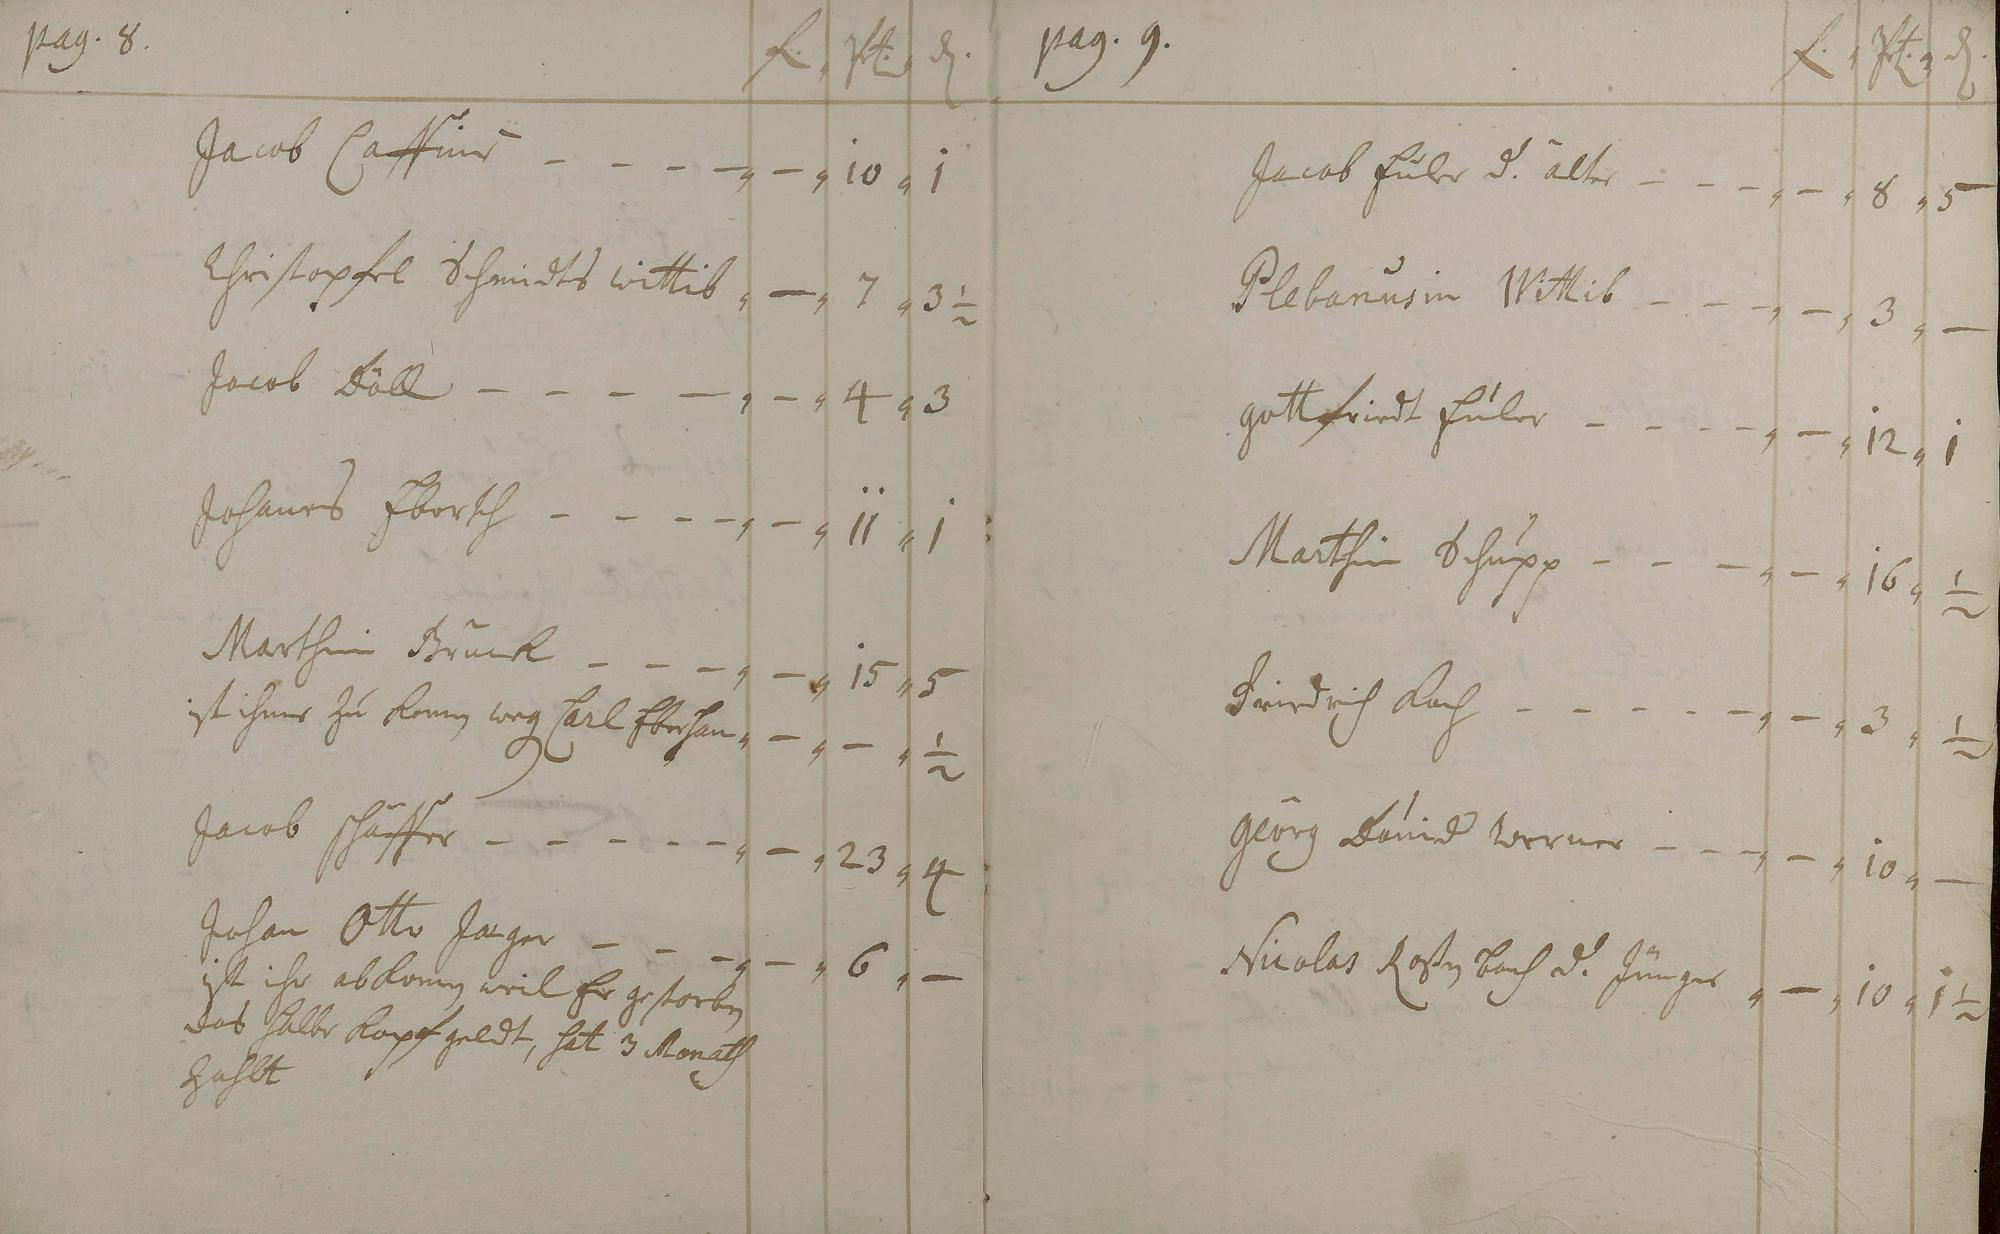 pag. 8. f. Xt. d.
Jacob Caffine - - - - „ - „ 10 „ 1
Christopfel Schmidts wittib „ - „ 7 „ 3 ½
Jacob Döll - - - - - „ - „ 4 „ 3
Johanes Ebersch - - - - „ - „ 11 „ 1
Marthin Brück - - - „ - „ 15 „ 5
ist ihme zu komen weg Carl Eberhan „ - „ - „ ½
Jacob schäffer - - - - - „ - „ 23 „ 4
Johan Otto Jager - - - „ - „ 6 „ -
ist ihr abkomen weil Er gestorben
das halbe kopfgeldt, hat 3 Monath
zahlt
pag. 9. f. Xt. d.
Jacob Euler d. älter - - - „ - „ 8 „ 5
Plebanusin Wittib - - - „ - „ 3 „ -
gottfriedt Euler - - - - „ - „ 12 „ 1
Marthin Schupp - - - „ - „ 16 „ ½
Friedrich Koch - - - - - „ - „ 3 „ ½
Georg David werner - - - „ - „ 10 „ -
Nicolas Roßenbach d. Jünger „ - „ 10 „ 1 ½